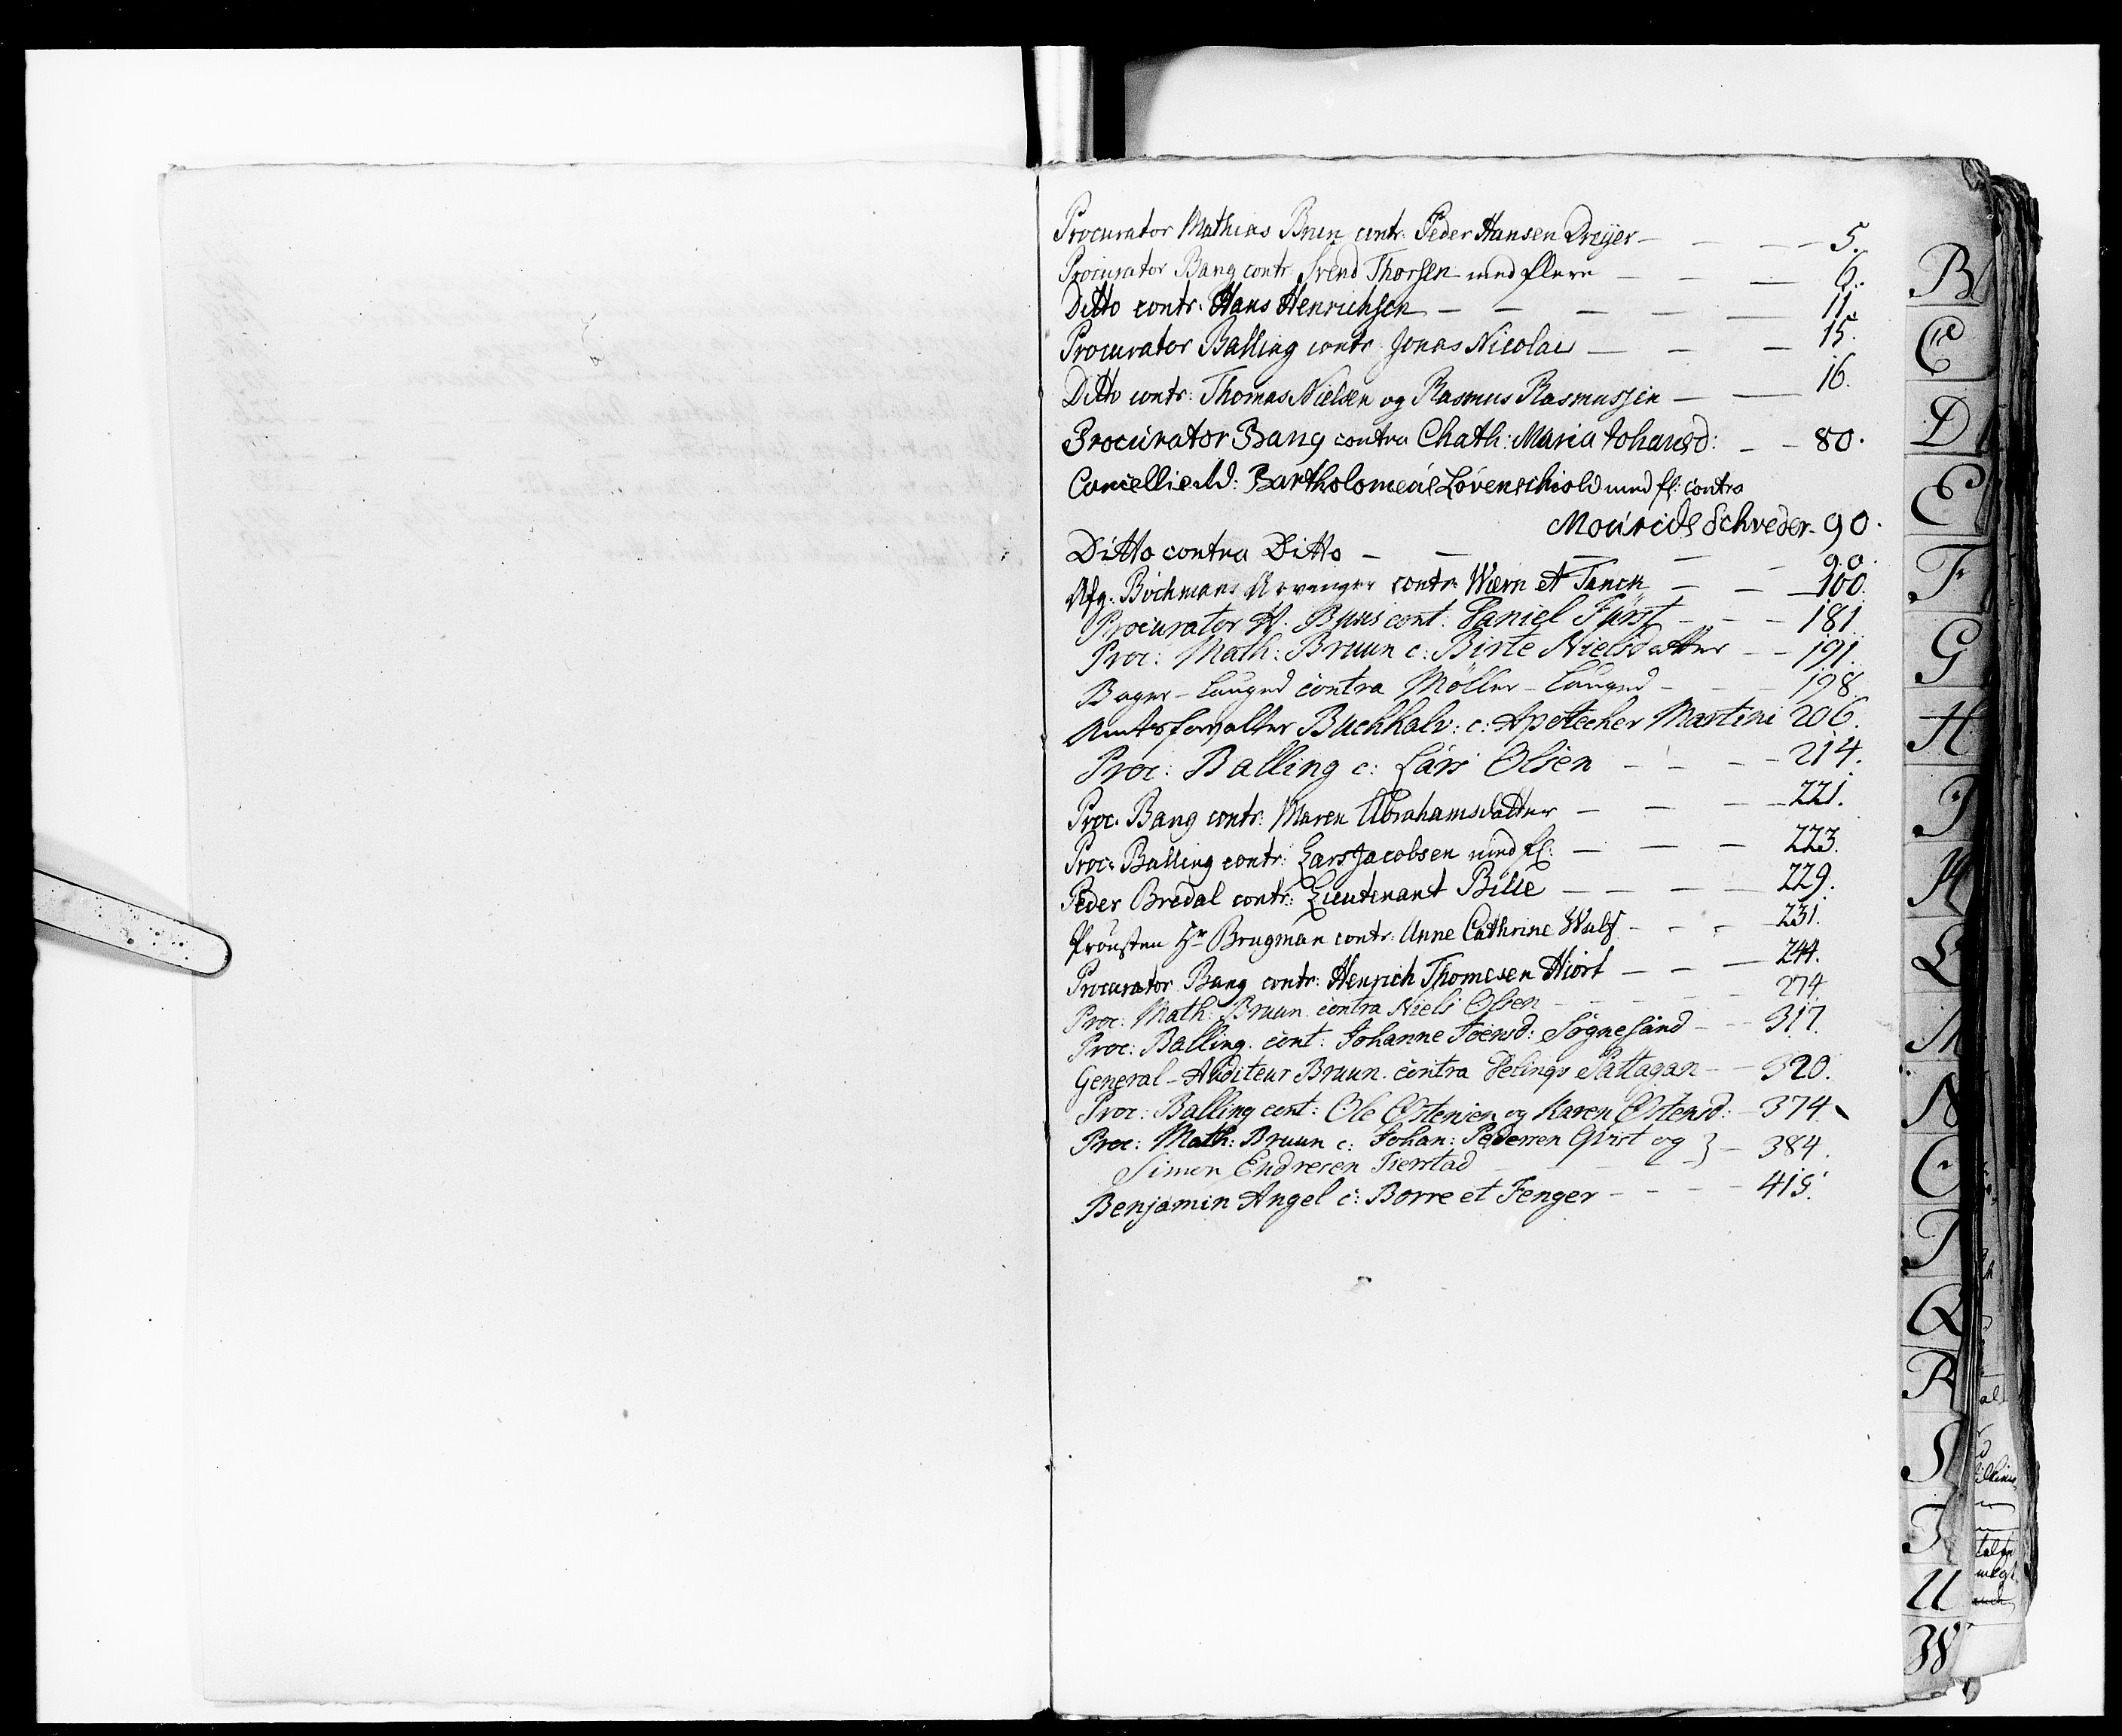 Procurator Mathias Brun contr: Peder Hansen Dreÿer - - - - 5.
Procurator Bang contr. Svend Thorsen med flere - - - 6.
Ditto contr: Hans Henrichsen - - - - - 11.
Procurator Balling contr Jonas Nicolai - - - 15.
Ditto contr: Thomas Nielsen og Rasmus Rasmussen - - 16.
Procurator Bang contra Chath: Maria Johansd: - - 80.
Bartholomeus Lövenschiold med fl: contra
Mourids Schveder - 90.
Ditto contra Ditto - - - - - 90.
Afg. Böchmans Arvenger contr Wærn et Tanck - - - 100.
Procurator M. Bruus cont: Daniel Fürst - - - 181.
Proc: Math: Bruun c: Birte Nielsdatter - - 191.
Bager-Lauged contra Möller-Lauged - - - 198.
Amtsforvalter Buchhalv: c: Apothecher Martini 206.
Proc: Balling c: Lars Olsen - - - - 214.
Proc. Bang contr: Maren Abrahamsdatter - - - 221.
Proc: Balling contr: Lars Jacobsen med fl: - - - 223.
Peder Bredal contr: Lieutenant Bille - - - - 229.
Provsten Hr Brugman contr: Anne Cathrine Wulf - - - 231.
Procurator Bang contr: Henrich Thomesen Hiort - - - 244.
Proc: Math: Bruun contra Niels Olsen - - - - - 274
Proc: Balling cont: Johanne Ioensd: Sognesand - - 317.
General-Auditeur Bruun contra - - 320.
Proc: Balling cont: Ole Ostensen og Karen Ostensd: - 374.
Proc: Math: Bruun c: Johan: Pedersen Qvist og } - 384.
Simen Endresen Tierstad - - - -
Benjamin Angel c: Borre et Fenger - - - - 415.
B
C
D
E
F
G
H
I
K
L
M
N
O
P
Q
R
S
T
U
W